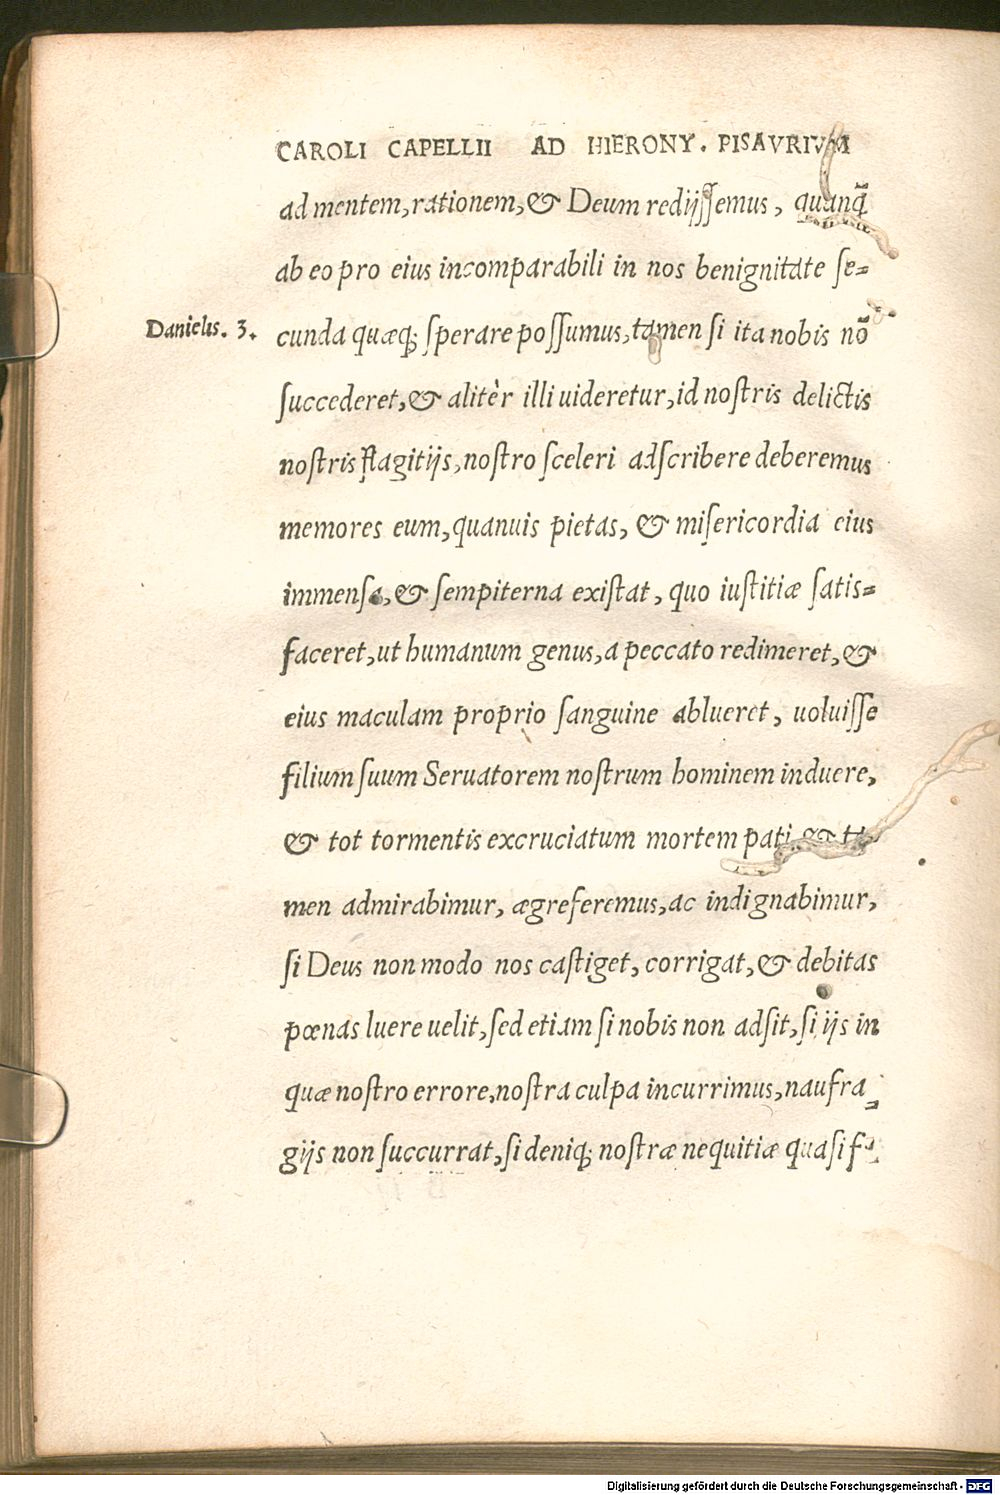 CAROLI CAPELLII AD HIERONY. PISAVRIVM
ad mentem, rationem, & Deum redijſſemus, quanq̃
ab eo pro eius incomparabili in nos benignitate ſe=
Danielis. 3.
cunda quæq; ſperare poſſumus, tamen ſi ita nobis nõ
ſuccederet, & alitèr illi uideretur, id noſtris delictis
noſtris flagitijs, noſtro ſceleri adſcribere deberemus
memores eum, quanuis pietas, & miſericordia eius
immenſa, & ſempiterna exiſtat, quo iuſtitiæ ſatis=
faceret, ut humanum genus, a peccato redimeret, &
eius maculam proprio ſanguine ablueret, uoluiſſe
filium ſuum Seruatorem noſtrum hominem induere,
& tot tormentis excruciatum mortem pati, & ta
men admirabimur, ægreferemus, ac indignabimur,
ſi Deus non modo nos caſtiget, corrigat, & debitas
pœnas luere uelit, ſed etiam ſi nobis non adſit, ſi ijs in
quæ noſtro errore, noſtra culpa incurrimus, naufra=
gijs non ſuccurrat, ſi deniq; noſtræ nequitiæ quaſi
Digitalisierung gefördert durch die Deutsche Forschungsgemeinschaft - DFG